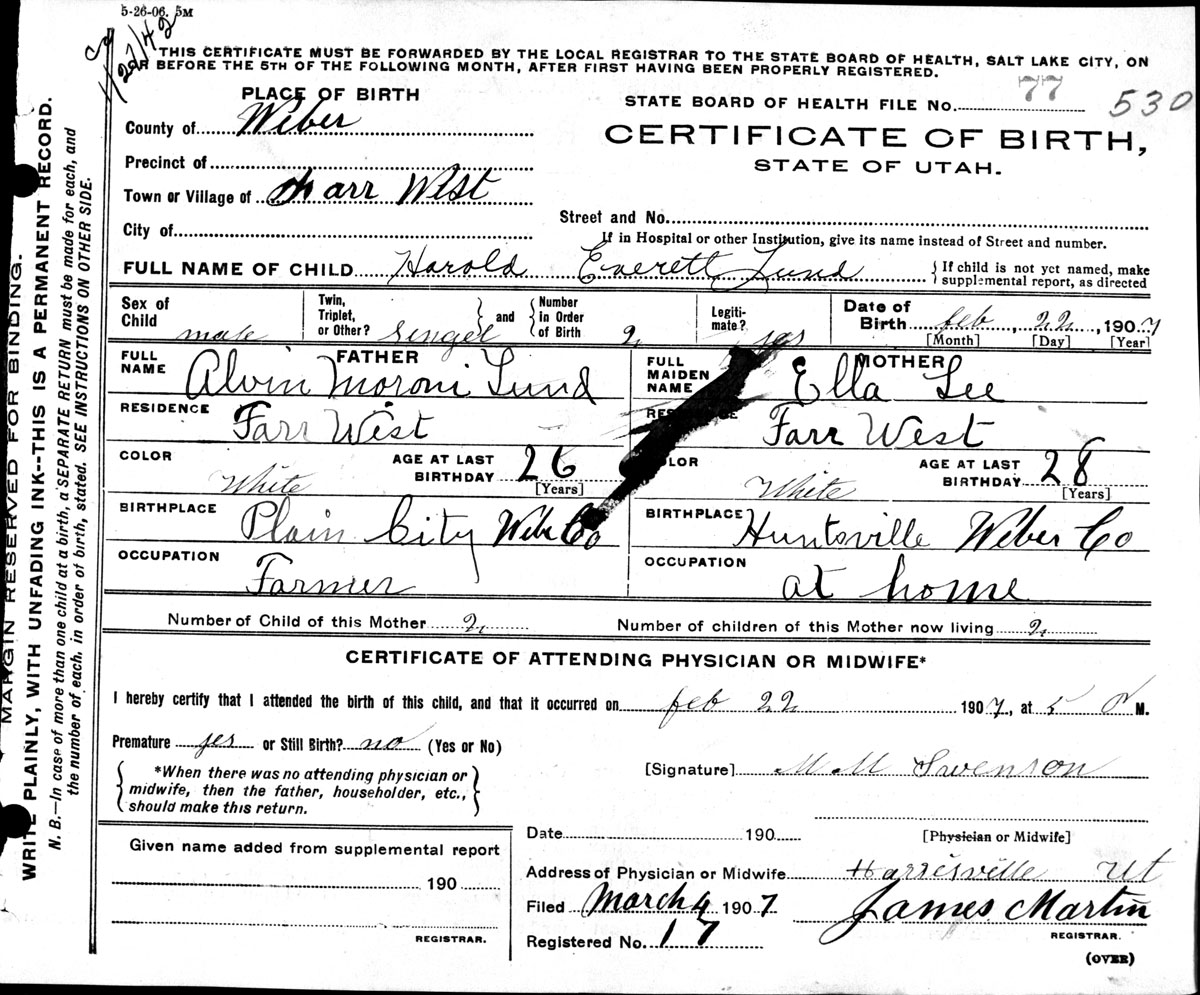 5-26-06. 5M
THIS CERTIFICATE MUST BE FORWARDED BY THE LOCAL REGISTRAR TO THE STATE BOARD OF HEALTH, SALT LAKE CITY, ON
OR BEFORE THE 5TH OF THE FOLLOWING MONTH, AFTER FIRST HAVING BEEN PROPERLY REGISTERED.
PLACE OF BIRTH
STATE BOARD OF HEALTH FILE No. 77 530
County of Weber
CERTIFICATE OF BIRTH,
STATE OF UTAH.
Precinct of
Town or Village of Farr West
Street and No.
City of
If in Hospital or other Institution, give its name instead of Street and number.
FULL NAME OF CHILD Harold Everett Lund { If child is not yet named, make supplemental report, as directed
Sex of Child male
Twin, Triplet, or Other? singel } and { Number in Order of Birth 2
Legitimate? yes
Date of Birth feb, 22, 1907
[Month] [Day] [Year]
FATHER
FULL NAME Alvin Moroni Lund
MOTHER
FULL MAIDEN NAME Ella Lee
RESIDENCE Farr West
RESIDENCE Farr West
COLOR White AGE AT LAST BIRTHDAY 26 [Years]
COLOR White AGE AT LAST BIRTHDAY 28 [Years]
BIRTHPLACE Plain City Webr Co
BIRTHPLACE Huntsville Weber Co
OCCUPATION Farmer
OCCUPATION at home
Number of Child of this Mother 2
Number of children of this Mother now living 2
CERTIFICATE OF ATTENDING PHYSICIAN OR MIDWIFE*
I hereby certify that I attended the birth of this child, and that it occurred on feb 22 1907, at 5 M.
Premature yes or Still Birth? no (Yes or No)
*When there was no attending physician or
midwife, then the father, householder, etc.,
should make this return.
[Signature] M M Swenson
Date 190
[Physician or Midwife]
Given name added from supplemental report
190
REGISTRAR.
Address of Physician or Midwife Harrisville Ut
Filed March 4 1907 James Martin
REGISTRAR.
Registered No. 17
(OVER)
MARGIN RESERVED FOR BINDING.
WRITE PLAINLY, WITH UNFADING INK--THIS IS A PERMANENT RECORD.
N. B.—In case of more than one child at a birth, a SEPARATE RETURN must be made for each, and
the number of each, in order of birth, stated. SEE INSTRUCTIONS ON OTHER SIDE.